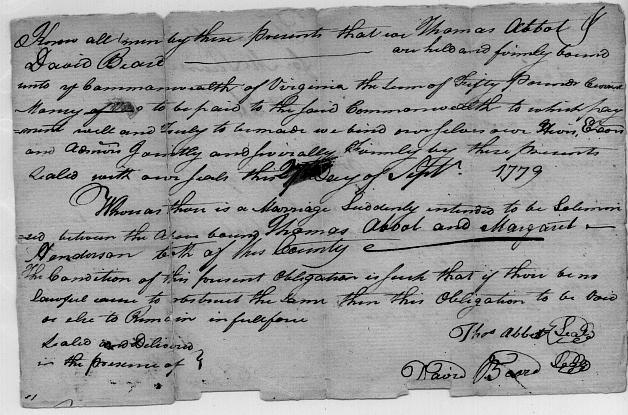 Know all men by these presents that we Thomas Abbot &
David Beard are held and firmly bound
unto ye Commonwealth of Virginia the Sum of Fifty Pounds Current
Money of to be paid to the said Commonwealth to which pay
ment well and Truly to be made we bind ourselves our Heirs, Exors
and Admors Jointly and severally Firmly by these presents
Sealed with our seals this Day of Sept. 1779
Whereas there is a Marriage Suddenly intended to be Solemn
zed between the Above bound Thomas Abbot and Margaret
Henderson both of this County
The Condition of this present Obligation is such that if there be no
lawful cause to obstruct the Same then this Obligation to be Void
or else to Remain in full force
Sealed and Delivered
in the presence of
Thos Abbot Seal
David Beard Seal